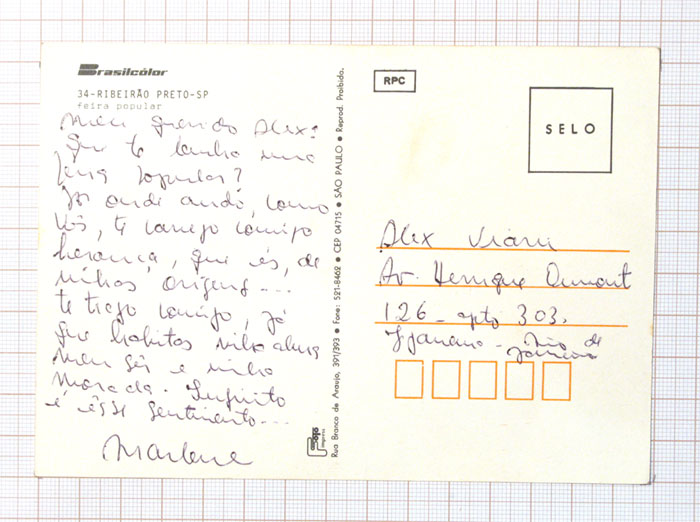 Brasilcolor
34-RIBEIRÃO PRETO-SP
feira popular
Meu querido Alex:
Que te tenho numa
feira popular?
Por onde ando, como
vês, te carrego comigo
herança, que és, de
minhas origens...
te trago comigo, já
que habitas minha alma
meu ser e minha
morada. Infinito
é êsse sentimento...
Marlene
foto
Rua Branco de Araujo, 391/393 • Fone: 521-8462 • CEP 04715 • SÃO PAULO • Reprod. Proibida.
RPC
SELO
Alex Viany
Av. Henrique Dumont
126 - apto 303.
Ipanema - Rio de
Janeiro